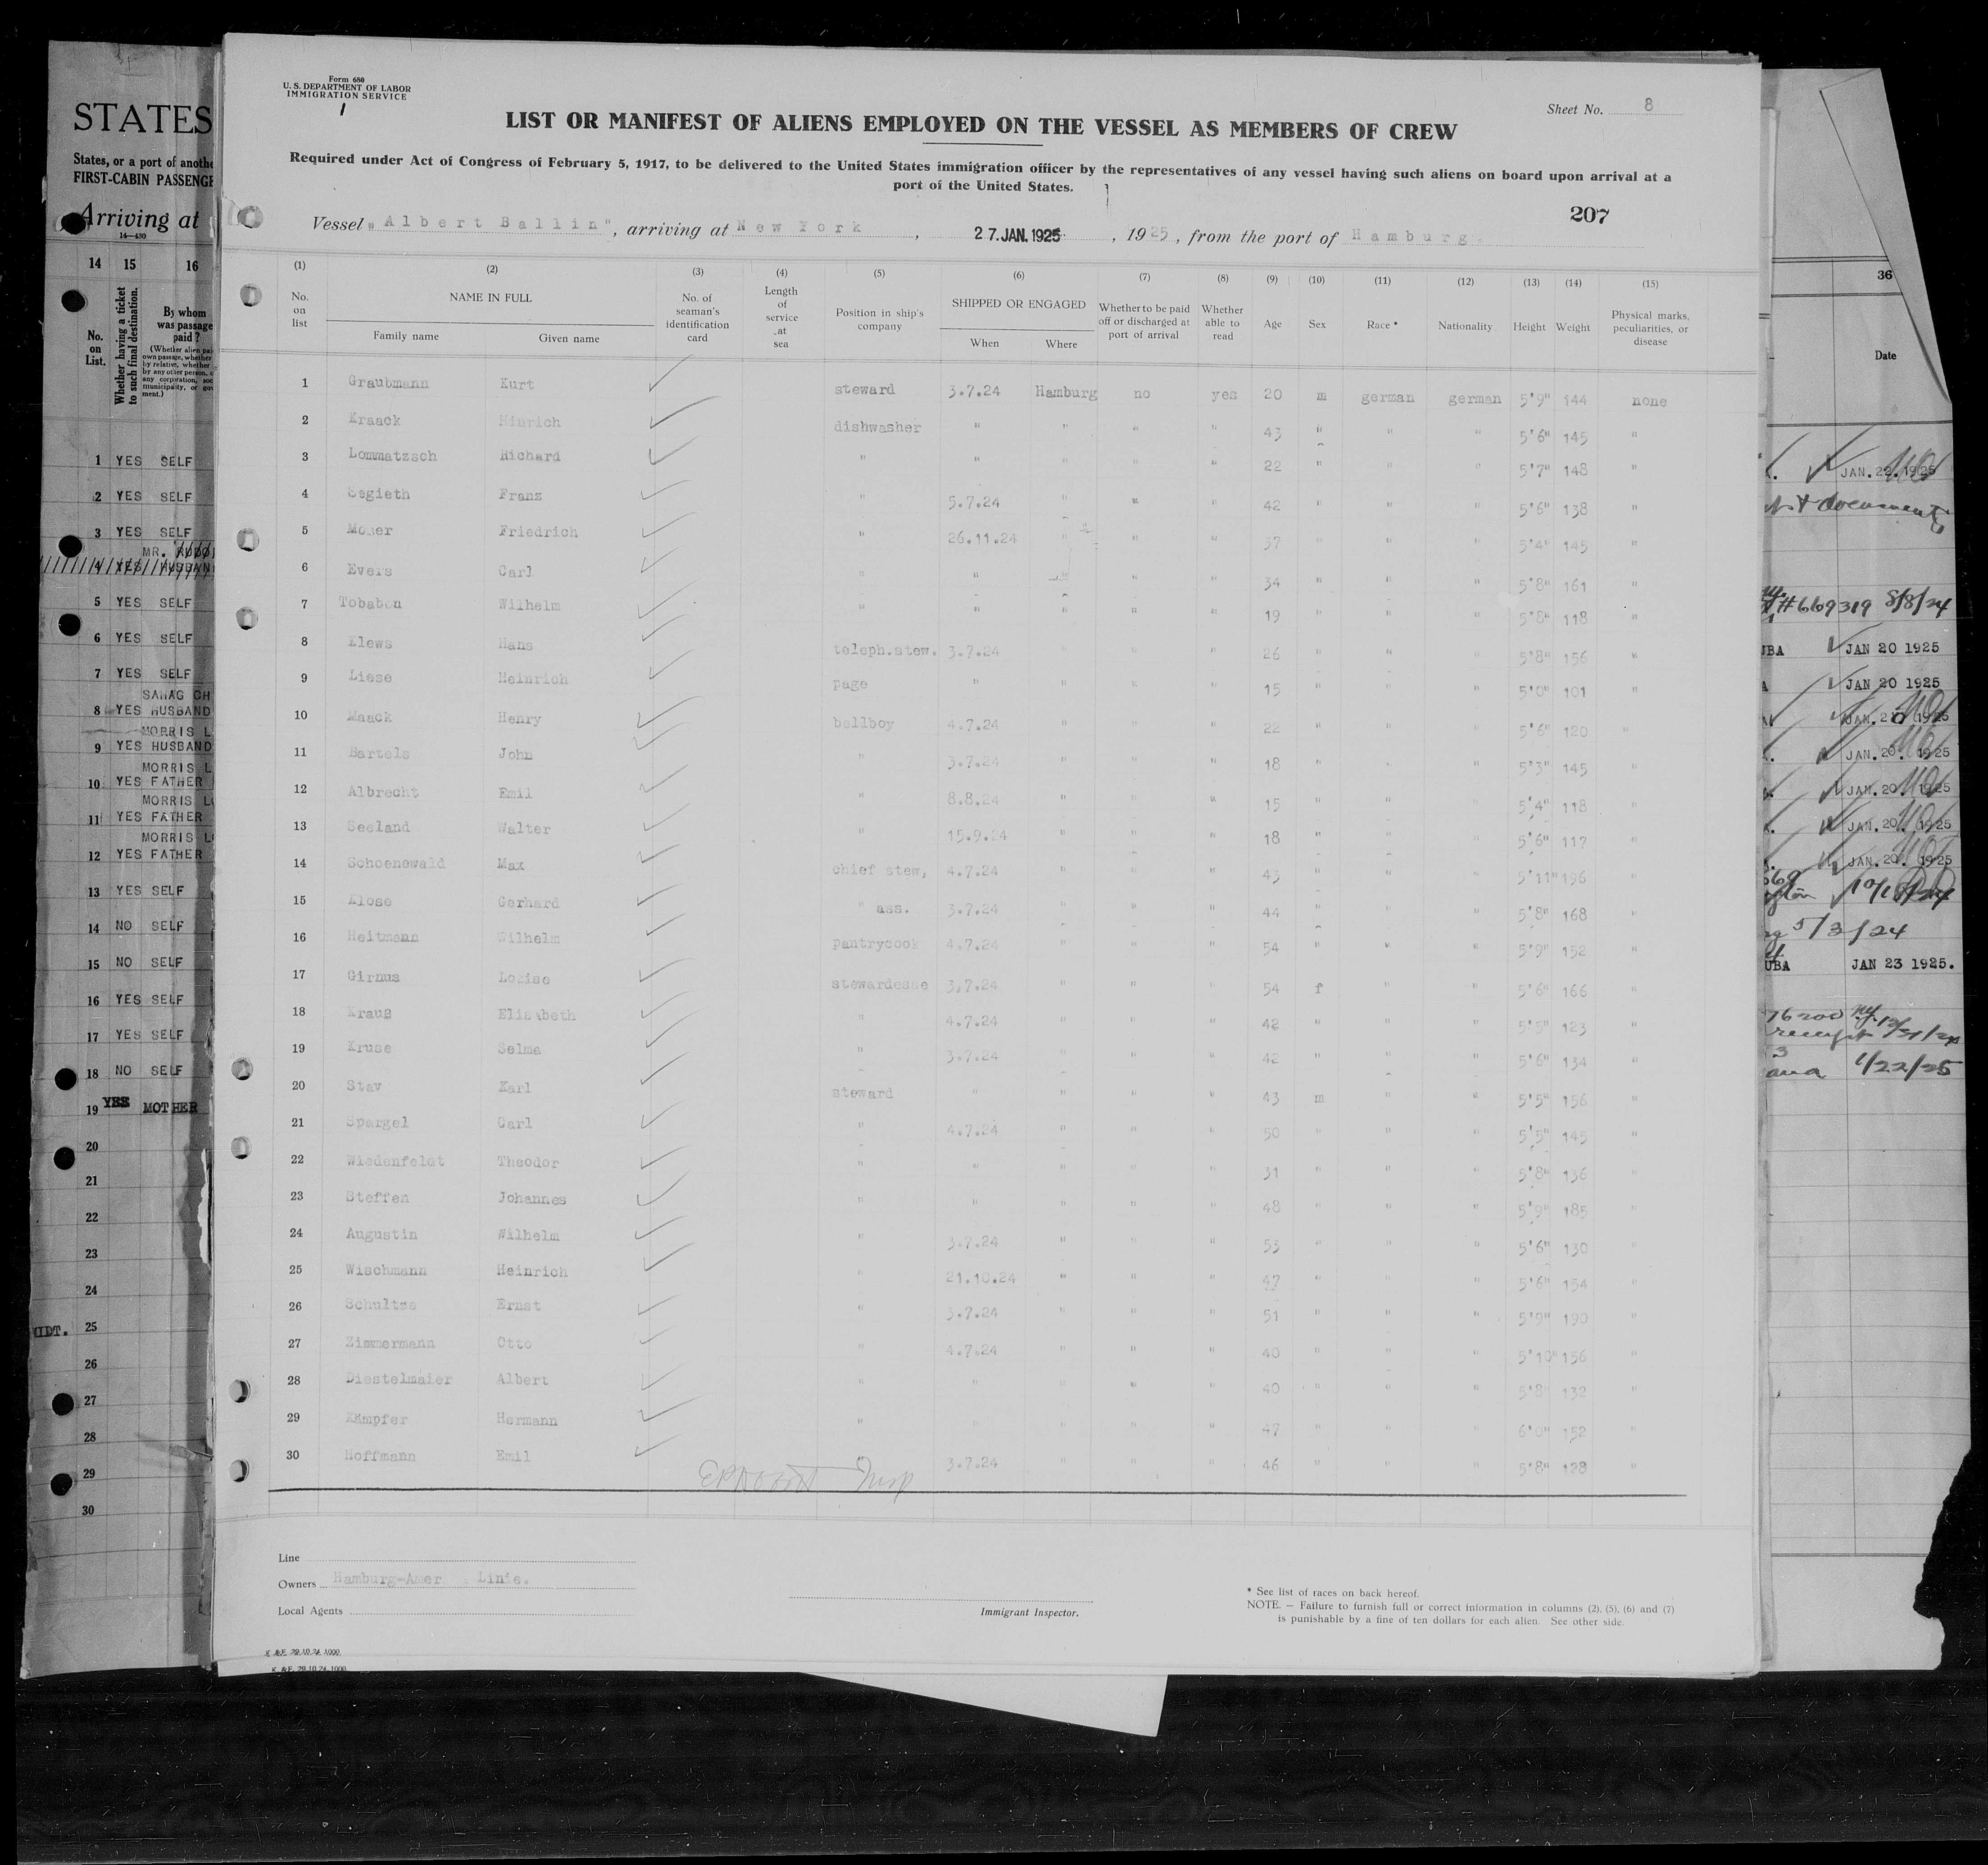 Form 680
U. S. DEPARTMENT OF LABOR
IMMIGRATION SERVICE
Sheet No. 8
LIST OR MANIFEST OF ALIENS EMPLOYED ON THE VESSEL AS MEMBERS OF CREW
Required under Act of Congress of February 5, 1917, to be delivered to the United States immigration officer by the representatives of any vessel having such aliens on board upon arrival at a
port of the United States.
207
Vessel „Albert Ballin", arriving at New York, 27. JAN. 1925, 1925, from the port of Hamburg
(1) (2) (3) (4) (5) (6) (7) (8) (9) (10) (11) (12) (13) (14) (15)
No. on list NAME IN FULL Family name Given name No. of seaman's identification card Length of service at sea Position in ship's company SHIPPED OR ENGAGED When Where Whether to be paid off or discharged at port of arrival Whether able to read Age Sex Race * Nationality Height Weight Physical marks, peculiarities, or disease
1 Graubmann Kurt steward 3.7.24 Hamburg no yes 20 m german german 5'9" 144 none
2 Kraack Hinrich dishwasher " " " " 43 " " " 5'6" 145 "
3 Lommatzsch Richard " " " " " 22 " " " 5'7" 148 "
4 Segieth Franz " 5.7.24 " " " 42 " " " 5'6" 138 "
5 Friedrich " 26.11.24 " " " 37 " " " 5'4" 145 "
6 Evers Carl " " " " " 34 " " " 5'8" 161 "
7 Tobaben Wilhelm " " " " " 19 " " " 5'8" 118 "
8 Klews Hans teleph.stew. 3.7.24 " " " 26 " " " 5'8" 156 "
9 Liese Heinrich page " " " " 15 " " " 5'0" 101 "
10 Maack Henry bellboy 4.7.24 " " " 22 " " " 5'6" 120 "
11 Bartels John " 3.7.24 " " " 18 " " " 5'3" 145 "
12 Albrecht Emil " 8.8.24 " " " 15 " " " 5'4" 118 "
13 Seeland Walter " 15.9.24 " " " 18 " " " 5'6" 117 "
14 Schoenewald Max chief stew, 4.7.24 " " " 43 " " " 5'11" 196 "
15 Klose Gerhard " ass. 3.7.24 " " " 44 " " " 5'8" 168 "
16 Heitmann Wilhelm pantrycook 4.7.24 " " " 54 " " " 5'9" 152 "
17 Girnus Louise stewardesse 3.7.24 " " " 54 f " " 5'6" 166 "
18 Krauß Elisabeth " 4.7.24 " " " 42 " " " 5'5" 123 "
19 Kruse Selma " 3.7.24 " " " 42 " " " 5'6" 134 "
20 Stav Karl steward " " " " 43 m " " 5'5" 156 "
21 Spargel Carl " 4.7.24 " " " 50 " " " 5'5" 145 "
22 Wiedenfeldt Theodor " " " " " 31 " " " 5'8" 136 "
23 Steffen Johannes " " " " " 48 " " " 5'9" 185 "
24 Augustin Wilhelm " 3.7.24 " " " 53 " " " 5'6" 130 "
25 Wischmann Heinrich " 21.10.24 " " " 47 " " " 5'6" 154 "
26 Schultze Ernst " 3.7.24 " " " 51 " " " 5'9" 190 "
27 Zimmermann Otto " 4.7.24 " " " 40 " " " 5'10" 156 "
28 Diestelmaier Albert " " " " " 40 " " " 5'8" 132 "
29 Kämpfer Hermann " " " " " 47 " " " 6'0" 152 "
30 Hoffmann Emil 3.7.24 " " " 46 " " " 5'8" 128 "
Insp
Line
Owners Hamburg-Amer Linie.
Local Agents
Immigrant Inspector.
* See list of races on back hereof.
NOTE. — Failure to furnish full or correct information in columns (2), (5), (6) and (7)
is punishable by a fine of ten dollars for each alien. See other side.
K. &F. 29.10.24.1000.
K. &F. 29.10.24.1000.
STATES
States, or a port of anothe
FIRST-CABIN PASSENGE
Arriving at
14—430
14 15 16
No. on List.
Whether having a ticket to such final destination.
By whom
was passage
paid ?
(Whether alien pai
own passage, whether
by relative, whether
by any other person, o
any corporation, soc
municipality, or gov
ment.)
1 YES SELF
2 YES SELF
3 YES SELF
MR. RUDO
4 YES HUSBAN
5 YES SELF
6 YES SELF
7 YES SELF
SAHAG CH
8 YES HUSBAND
MORRIS L
9 YES HUSBAND
MORRIS L
10 YES FATHER
MORRIS LO
11 YES FATHER
MORRIS LO
12 YES FATHER
13 YES SELF
14 NO SELF
15 NO SELF
16 YES SELF
17 YES SELF
18 NO SELF
19 YES MOTHER
20
21
22
23
24
MIDT. 25
26
27
28
29
30
36
Date
JAN. 22. 1925
documents
#669319 8/8/24
UBA JAN 20 1925
A JAN 20 1925
JAN. 20 1925
JAN. 20. 1925
JAN. 20. 1925
JAN. 20. 1925
JAN. 20. 1925
5/3/24
UBA JAN 23 1925.
receipt
ana 1/22/25